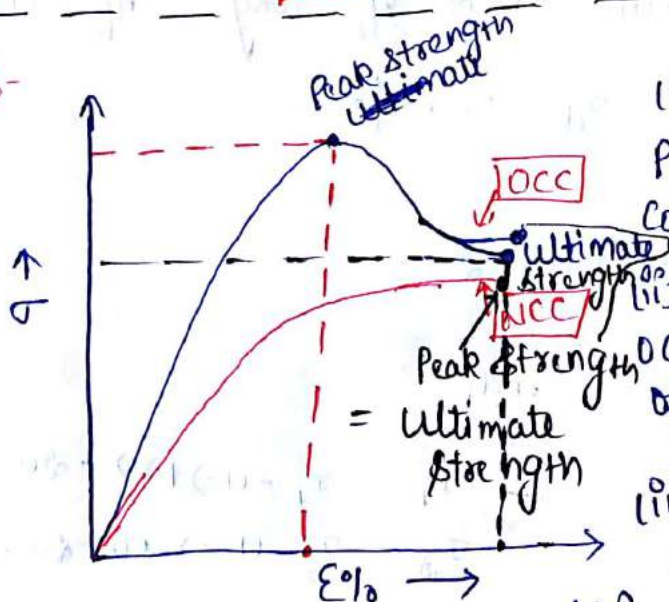 Peak strength
ultimate
OCC
ultimate
strength
NCC
Peak strength
= ultimate
strength
σ →
ε% →
(ii)